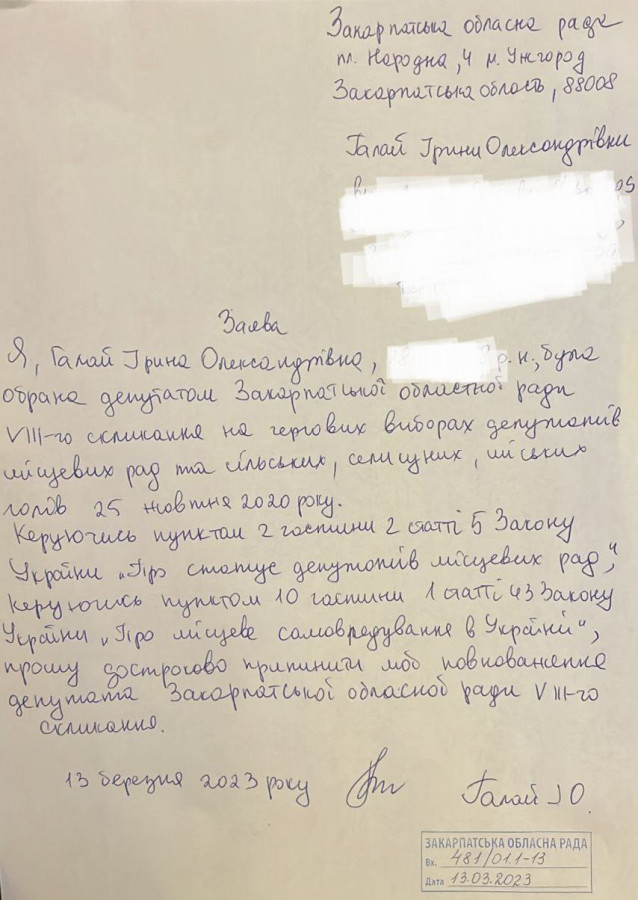 Закарпатська обласна рада
пл. Народна, 4 м. Ужгород
Закарпатська область, 88008
Галай Ірини Олександрівни
Заява
Я, Галай Ірина Олександрівна, р.н., була
обрана депутатом Закарпатської обласної ради
VIII-го скликання на чергових виборах депутатів
місцевих рад та сільських, селищних, міських
голів 25 жовтня 2020 року.
Керуючись пунктом 2 частини 2 статті 5 Закону
України „Про статус депутатів місцевих рад",
керуючись пунктом 10 частини 1 статті 43 Закону
України „Про місцеве самоврядування в Україні",
прошу достроково припинити мої повноваження
депутата Закарпатської обласної ради VIII-го
скликання.
13 березня 2023 року Галай І О.
ЗАКАРПАТСЬКА ОБЛАСНА РАДА
Вх. 481/01.1-13
Дата 13.03.2023